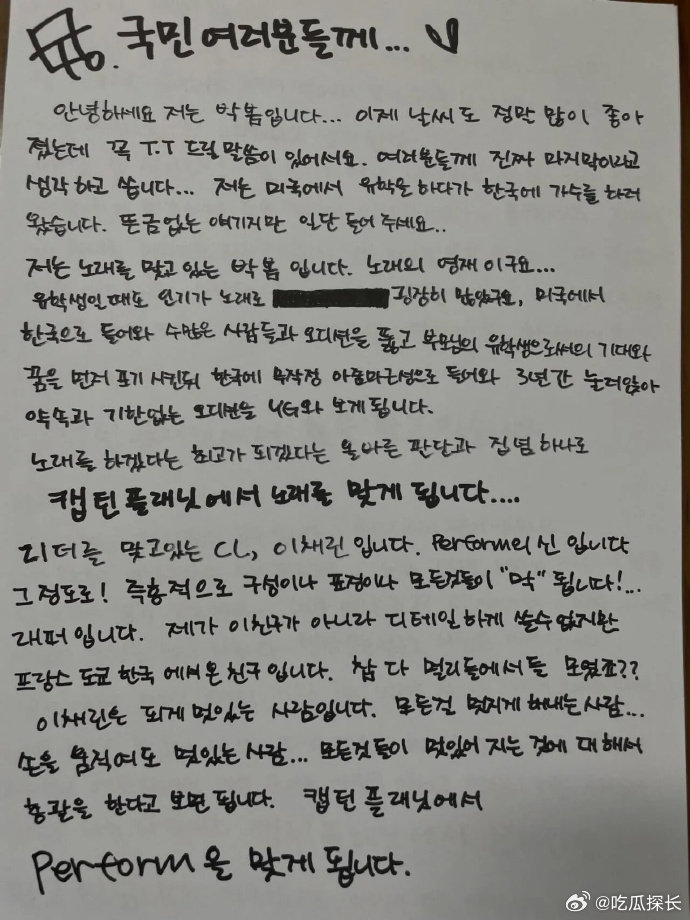 국민 여러분들께...
안녕하세요 저는 박봄입니다... 이제 날씨도 정말 많이 좋아
졌는데 꼭 T.T 드릴 말씀이 있어서요. 여러분들께 진짜 마지막이라고
생각하고 씁니다... 저는 미국에서 유학을 하다가 한국에 가수를 하러
왔습니다. 뜬금없는 얘기지만 일단 들어 주세요..
저는 노래를 맞고 있는 박봄 입니다. 노래의 영재이구요...
유학생일때도 인기가 노래로 굉장히 많았구요, 미국에서
한국으로 들어와 수많은 사람들과 오디션을 뚫고 부모님의 유학생으로써의 기대와
꿈을 먼저 포기 시킨뒤 한국에 무작정 아줌마근성으로 들어와 3년간 눌러앉아
약속과 기한없는 오디션을 YG와 보게됩니다.
노래를 하겠다는 최고가 되겠다는 올바른 판단과 집념 하나로
캡틴 플래닛에서 노래를 맞게 됩니다....
리더를 맞고있는 CL, 이채린입니다. Perform의 신 입니다
그정도로! 즉흥적으로 구성이나 표정이나 모든것들이 "막" 됩니다!...
래퍼입니다. 제가 이친구가 아니라 디테일하게 쓸수없지만
프랑스 도쿄 한국 에서 온 친구입니다. 참 다 멀리들에서들 모였죠??
이채린은 되게 멋있는 사람입니다. 모든걸 멋지게 해내는 사람...
손을 움직여도 멋있는 사람... 모든것들이 멋있어 지는 것에 대해서
총괄을 한다고 보면 됩니다. 캡틴 플래닛에서
Perform을 맞게 됩니다.
@吃瓜探长